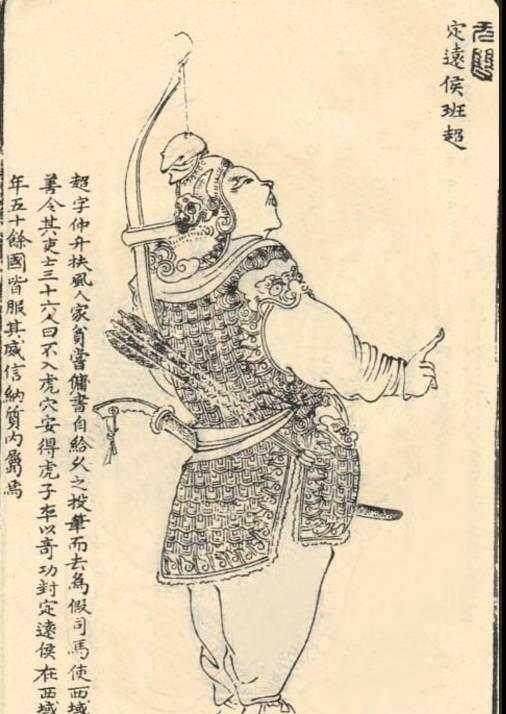 定遠侯班超
超字仲升扶風人家貧嘗傭書自給久之投筆而去為假司馬使西域
善令其吏士三十六人曰不入虎穴安得虎子卒以奇功封定遠侯在西域
年五十餘國皆服其威信納質內屬焉